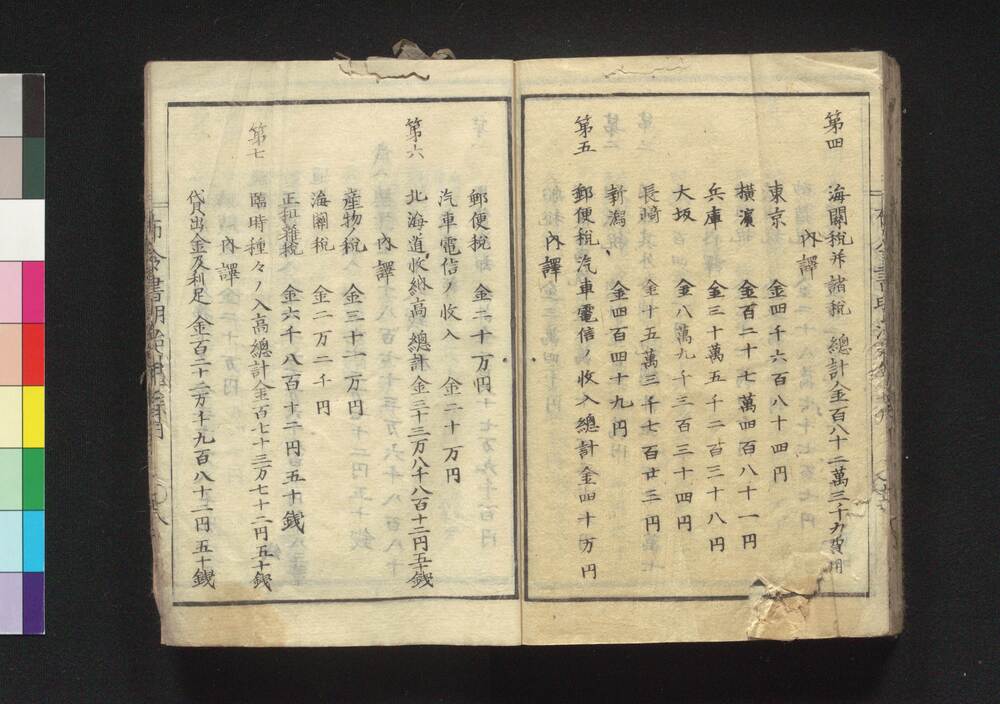 第四
海關稅幷諸稅 總計金百八十二萬三千九百円
內譯
東京 金四千六百八十四円
橫濱 金百二十七萬四百八十一円
兵庫 金三十萬五千二百三十八円
大坂 金八萬九千三百三十四円
長﨑 金十五萬三千七百廿三円
新潟 金四百四十九円
第五
郵便稅汽車電信ノ收入總計金四十万円
內譯
郵便稅 金二十万円
汽車電信ノ收入 金二十万円
第六
北海道收納高ノ總計金三十三万八千八百十二円五十錢
內譯
產物ノ稅 金三十一万円
海關稅 金二万二千円
正租雜稅 金六千八百十二円五十錢
第七
臨時種々ノ入高總計金百七十三万七十二円五十錢
內譯
貸出金及利足 金百二十二万千九百八十二円五十錢
布令書明治